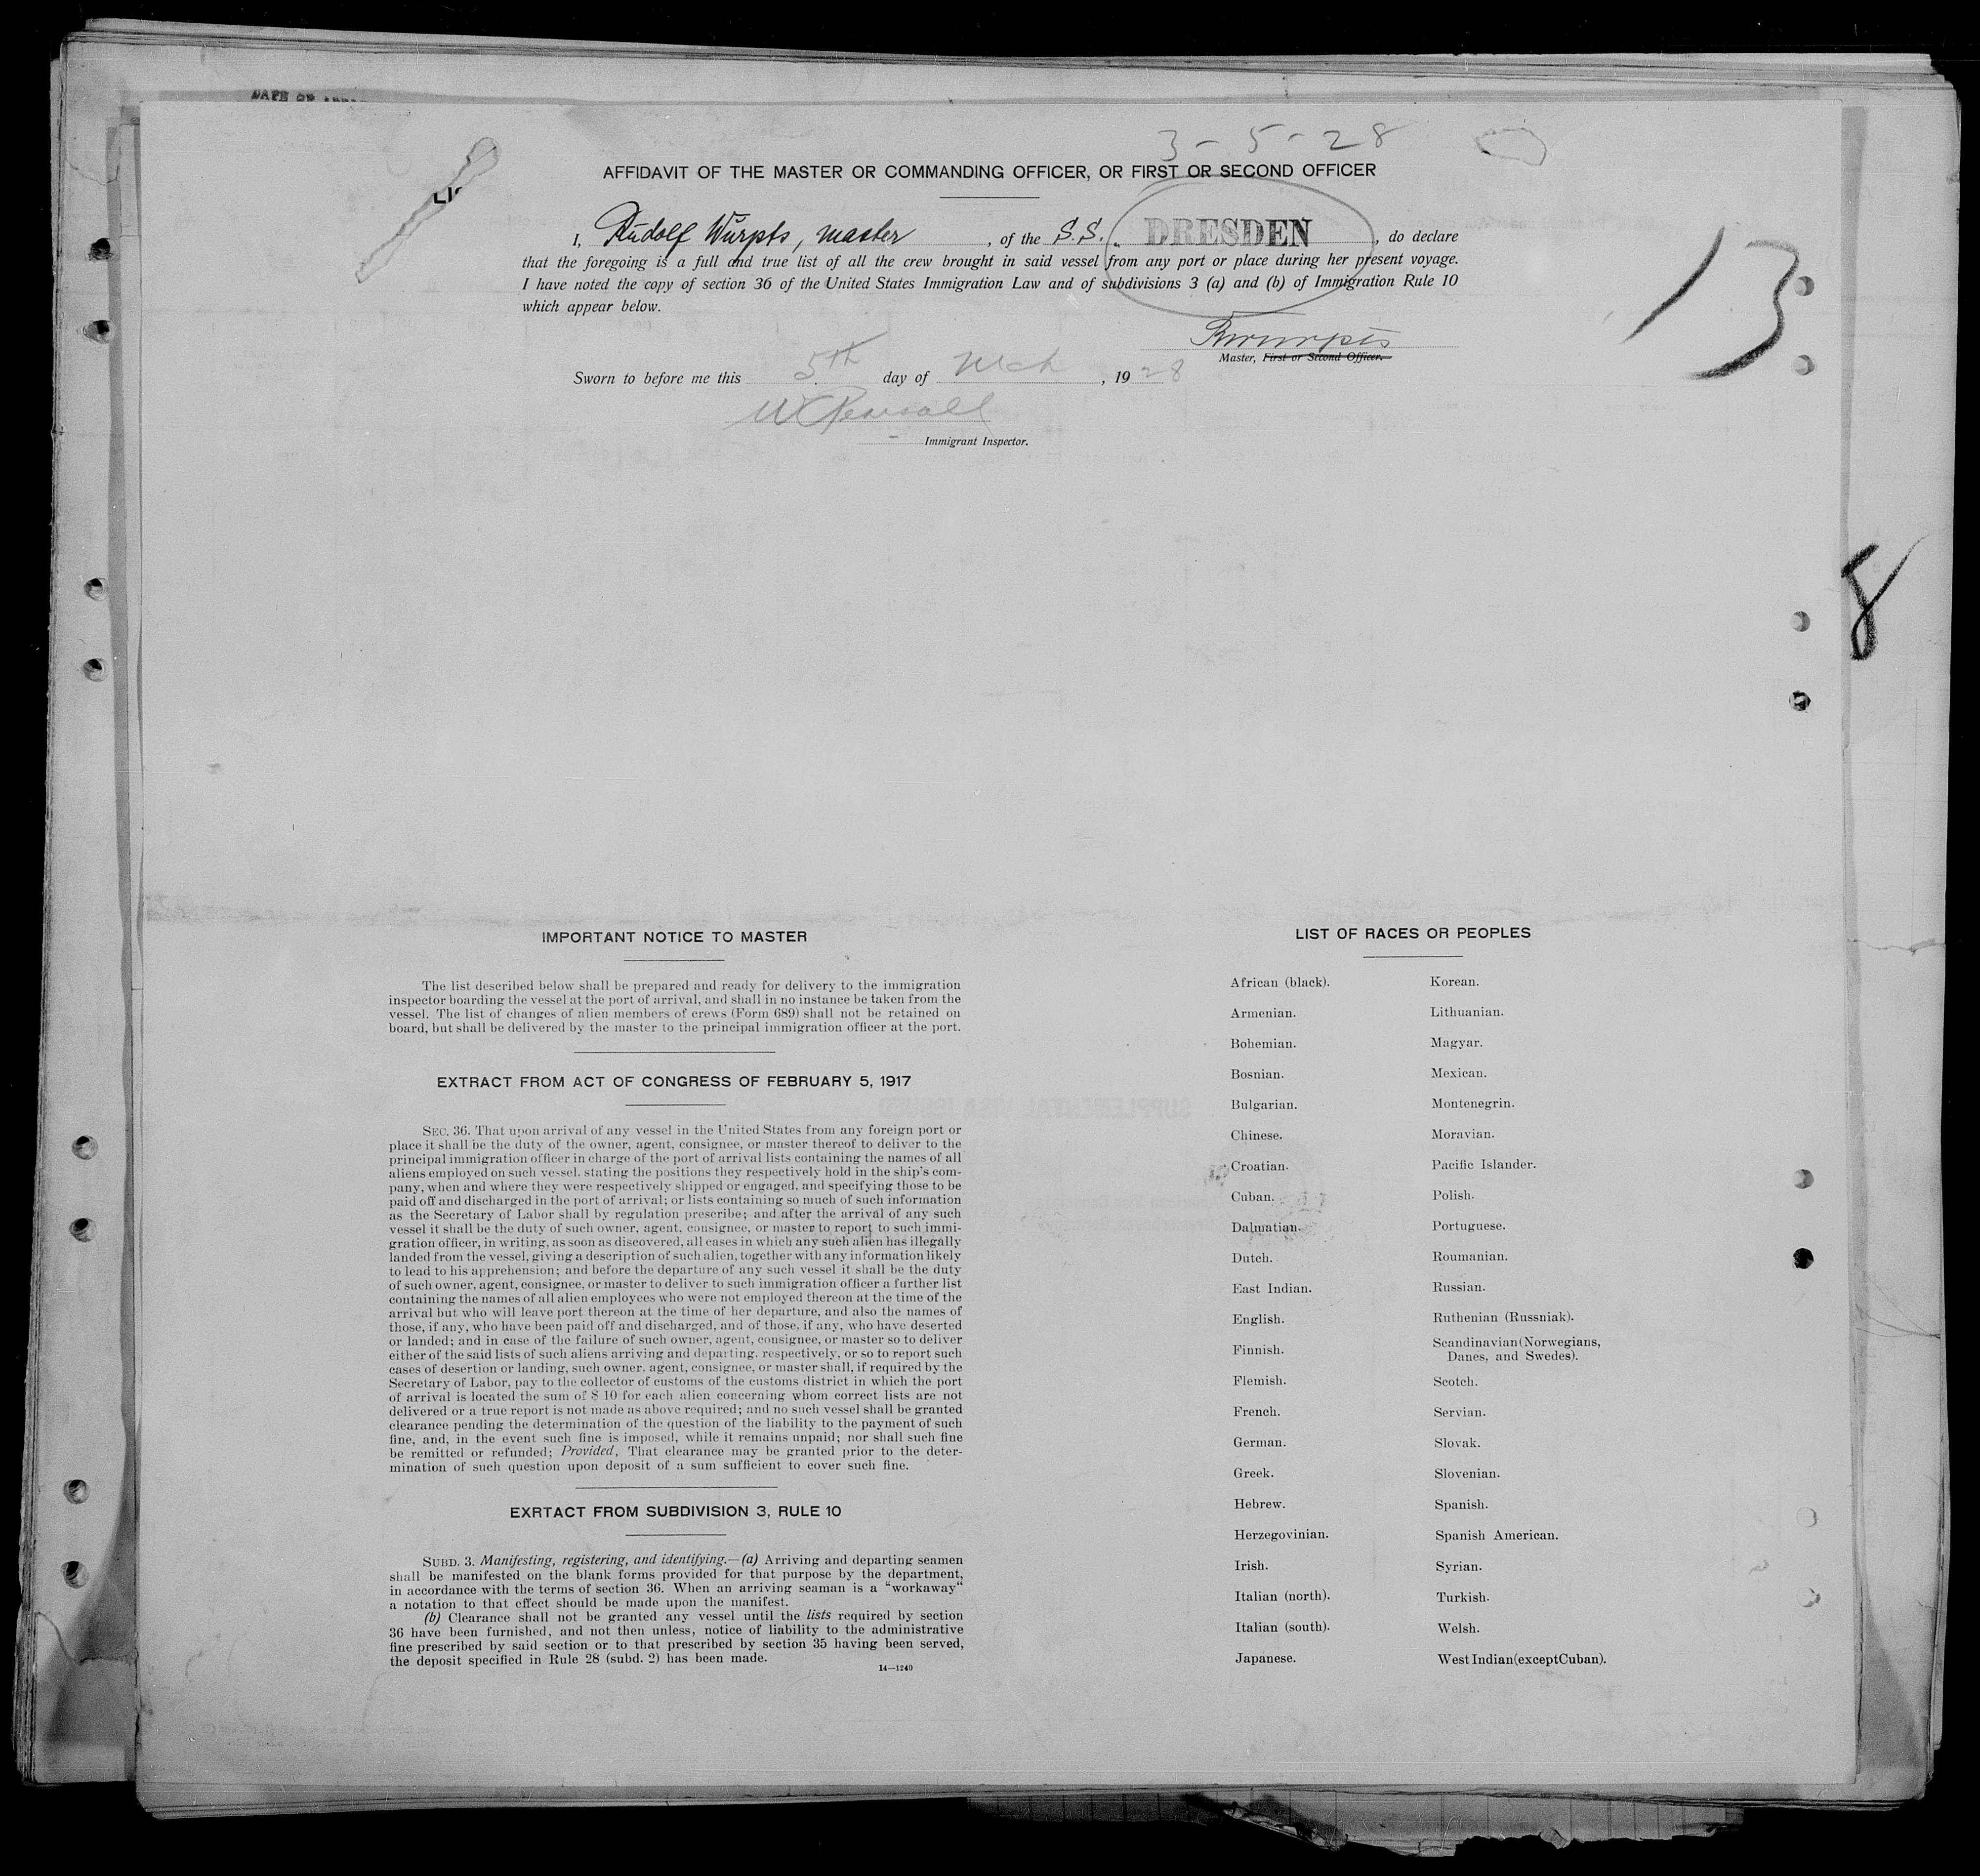 DATE OF
3-5-28
AFFIDAVIT OF THE MASTER OR COMMANDING OFFICER, OR FIRST OR SECOND OFFICER
I, Rudolf Würpts, master, of the S.S. „ DRESDEN, do declare
that the foregoing is a full and true list of all the crew brought in said vessel from any port or place during her present voyage.
I have noted the copy of section 36 of the United States Immigration Law and of subdivisions 3 (a) and (b) of Immigration Rule 10
which appear below.
13
RWürpts
Master, First or Second Officer.
Sworn to before me this 5th day of Mch, 1928
Immigrant Inspector.
8
IMPORTANT NOTICE TO MASTER
The list described below shall be prepared and ready for delivery to the immigration
inspector boarding the vessel at the port of arrival, and shall in no instance be taken from the
vessel. The list of changes of alien members of crews (Form 689) shall not be retained on
board, but shall be delivered by the master to the principal immigration officer at the port.
EXTRACT FROM ACT OF CONGRESS OF FEBRUARY 5, 1917
SEC. 36. That upon arrival of any vessel in the United States from any foreign port or
place it shall be the duty of the owner, agent, consignee, or master thereof to deliver to the
principal immigration officer in charge of the port of arrival lists containing the names of all
aliens employed on such vessel, stating the positions they respectively hold in the ship's com-
pany, when and where they were respectively shipped or engaged, and specifying those to be
paid off and discharged in the port of arrival; or lists containing so much of such information
as the Secretary of Labor shall by regulation prescribe; and after the arrival of any such
vessel it shall be the duty of such owner, agent, consignee, or master to report to such immi-
gration officer, in writing, as soon as discovered, all cases in which any such alien has illegally
landed from the vessel, giving a description of such alien, together with any information likely
to lead to his apprehension; and before the departure of any such vessel it shall be the duty
of such owner, agent, consignee, or master to deliver to such immigration officer a further list
containing the names of all alien employees who were not employed thereon at the time of the
arrival but who will leave port thereon at the time of her departure, and also the names of
those, if any, who have been paid off and discharged, and of those, if any, who have deserted
or landed; and in case of the failure of such owner, agent, consignee, or master so to deliver
either of the said lists of such aliens arriving and departing, respectively, or so to report such
cases of desertion or landing, such owner, agent, consignee, or master shall, if required by the
Secretary of Labor, pay to the collector of customs of the customs district in which the port
of arrival is located the sum of $ 10 for each alien concerning whom correct lists are not
delivered or a true report is not made as above required; and no such vessel shall be granted
clearance pending the determination of the question of the liability to the payment of such
fine, and, in the event such fine is imposed, while it remains unpaid; nor shall such fine
be remitted or refunded; Provided, That clearance may be granted prior to the deter-
mination of such question upon deposit of a sum sufficient to cover such fine.
EXRTACT FROM SUBDIVISION 3, RULE 10
SUBD. 3. Manifesting, registering, and identifying.—(a) Arriving and departing seamen
shall be manifested on the blank forms provided for that purpose by the department,
in accordance with the terms of section 36. When an arriving seaman is a “workaway“
a notation to that effect should be made upon the manifest.
(b) Clearance shall not be granted any vessel until the lists required by section
36 have been furnished, and not then unless, notice of liability to the administrative
fine prescribed by said section or to that prescribed by section 35 having been served,
the deposit specified in Rule 28 (subd. 2) has been made.
14—1240
LIST OF RACES OR PEOPLES
African (black).
Armenian.
Bohemian.
Bosnian.
Bulgarian.
Chinese.
Croatian.
Cuban.
Dalmatian.
Dutch.
East Indian.
English.
Finnish.
Flemish.
French.
German.
Greek.
Hebrew.
Herzegovinian.
Irish.
Italian (north).
Italian (south).
Japanese.
Korean.
Lithuanian.
Magyar.
Mexican.
Montenegrin.
Moravian.
Pacific Islander.
Polish.
Portuguese.
Roumanian.
Russian.
Ruthenian (Russniak).
Scandinavian (Norwegians,
Danes, and Swedes).
Scotch.
Servian.
Slovak.
Slovenian.
Spanish.
Spanish American.
Syrian.
Turkish.
Welsh.
West Indian (except Cuban).